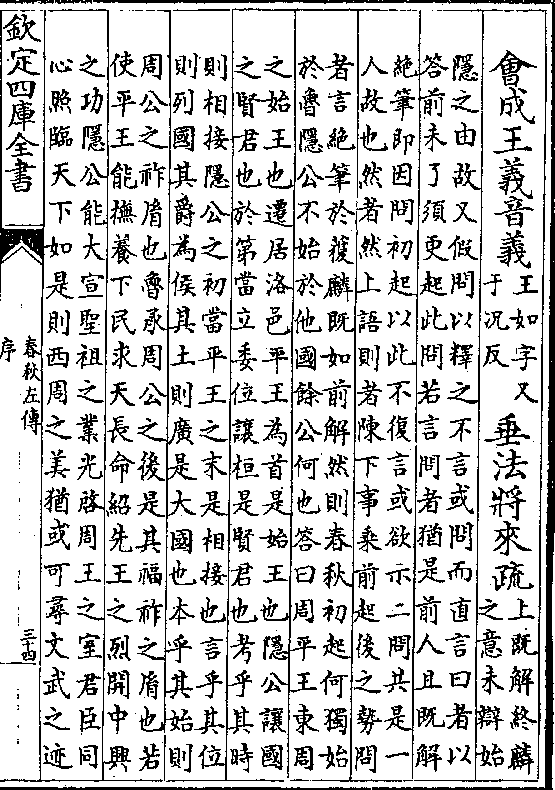 會成王義音義王如字又
于况反
垂法將來疏上既解終麟
之意未辯始
隱之由故又假問以釋之不言或問而直言曰者以
答前未了須更起此問若言問者猶是前人且既解
絶筆即因問初起以此不復言或欲示二問共是一
人故也然者然上語則者陳下事乘前起後之勢問
者言絶筆於獲麟既如前解然則春秋初起何獨始
於魯隱公不始於他國餘公何也答曰周平王東周
之始王也遷居洛邑平王為首是始王也隱公讓國
之賢君也於第當立委位讓桓是賢君也考乎其時
則相接隱公之初當平王之末是相接也言乎其位
則列國其爵為侯其土則廣是大國也本乎其始則
周公之祚胤也魯承周公之後是其福祚之胤也若
使平王能撫養下民求天長命紹先王之烈開中興
之功隱公能大宣聖祖之業光啓周王之室君臣同
心照臨天下如是則西周之美猶或可尋文武之迹
欽定四庫全書
春秋左傳
序
三十四